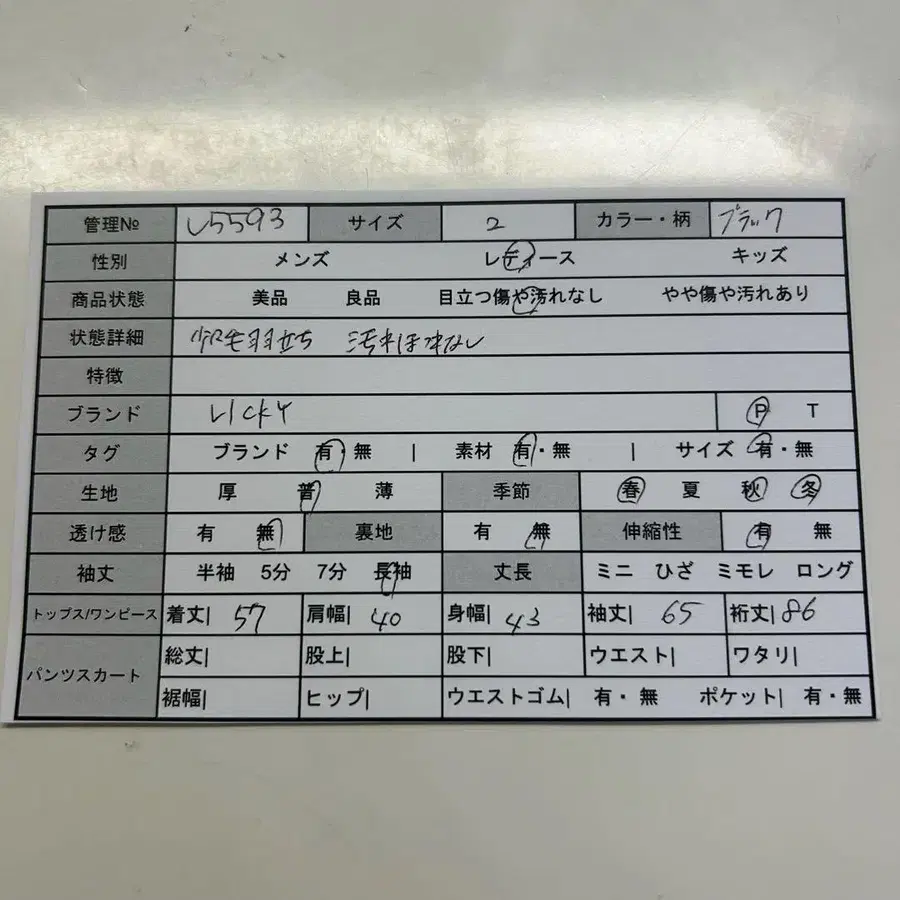 管理№ L5593 サイズ 2 カラー・柄 ブラック
性別 メンズ レディース キッズ
商品状態 美品 良品 目立つ傷や汚れなし やや傷や汚れあり
状態詳細 少毛羽立ち 汚れほつれなし
特徴
ブランド LICKY P T
タグ ブランド 有・無 | 素材 有・無 | サイズ 有・無
生地 厚 普 薄 季節 春 夏 秋 冬
透け感 有 無 裏地 有 無 伸縮性 有 無
袖丈 半袖 5分 7分 長袖 丈長 ミニ ひざ ミモレ ロング
トップス/ワンピース 着丈| 57 肩幅| 40 身幅| 43 袖丈| 65 裄丈| 86
パンツスカート 総丈| 股上| 股下| ウエスト| ワタリ|
裾幅| ヒップ| ウエストゴム| 有・無 ポケット| 有・無